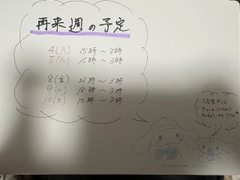 再来週の予定
4(月) 15時〜3時
5(火) 16時〜3時
8(金) 21時〜3時
9(土) 18時〜3時
10(日) 10時〜3時